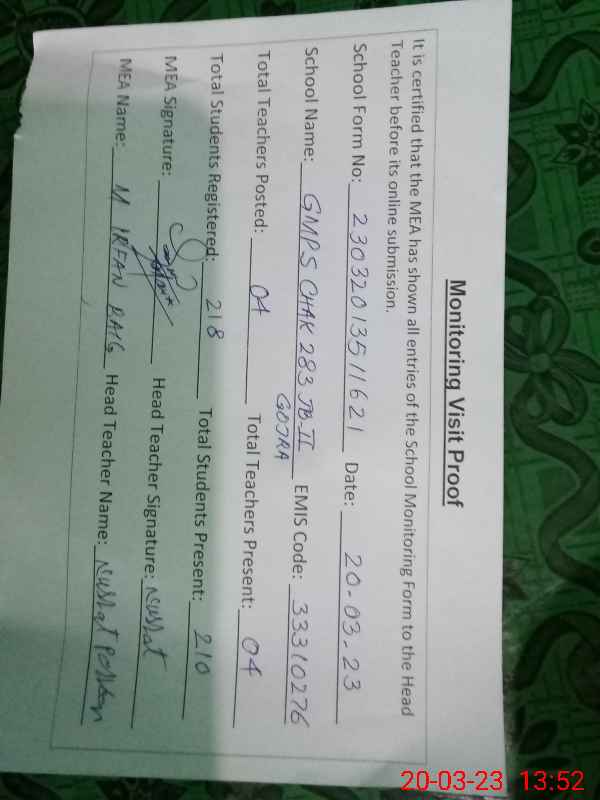 Monitoring Visit Proof
It is certified that the MEA has shown all entries of the School Monitoring Form to the Head
Teacher before its online submission.
School Form No: 23032013511621 Date: 20-03-23
School Name: GMPS CHAK 283 JB II GOJRA EMIS Code: 33310276
Total Teachers Posted: 04 Total Teachers Present: 04
Total Students Registered: 218 Total Students Present: 210
MEA Signature: Head Teacher Signature: Nushat
MEA Name: M IRFAN BAIG Head Teacher Name: Nushat
20-03-23 13:52